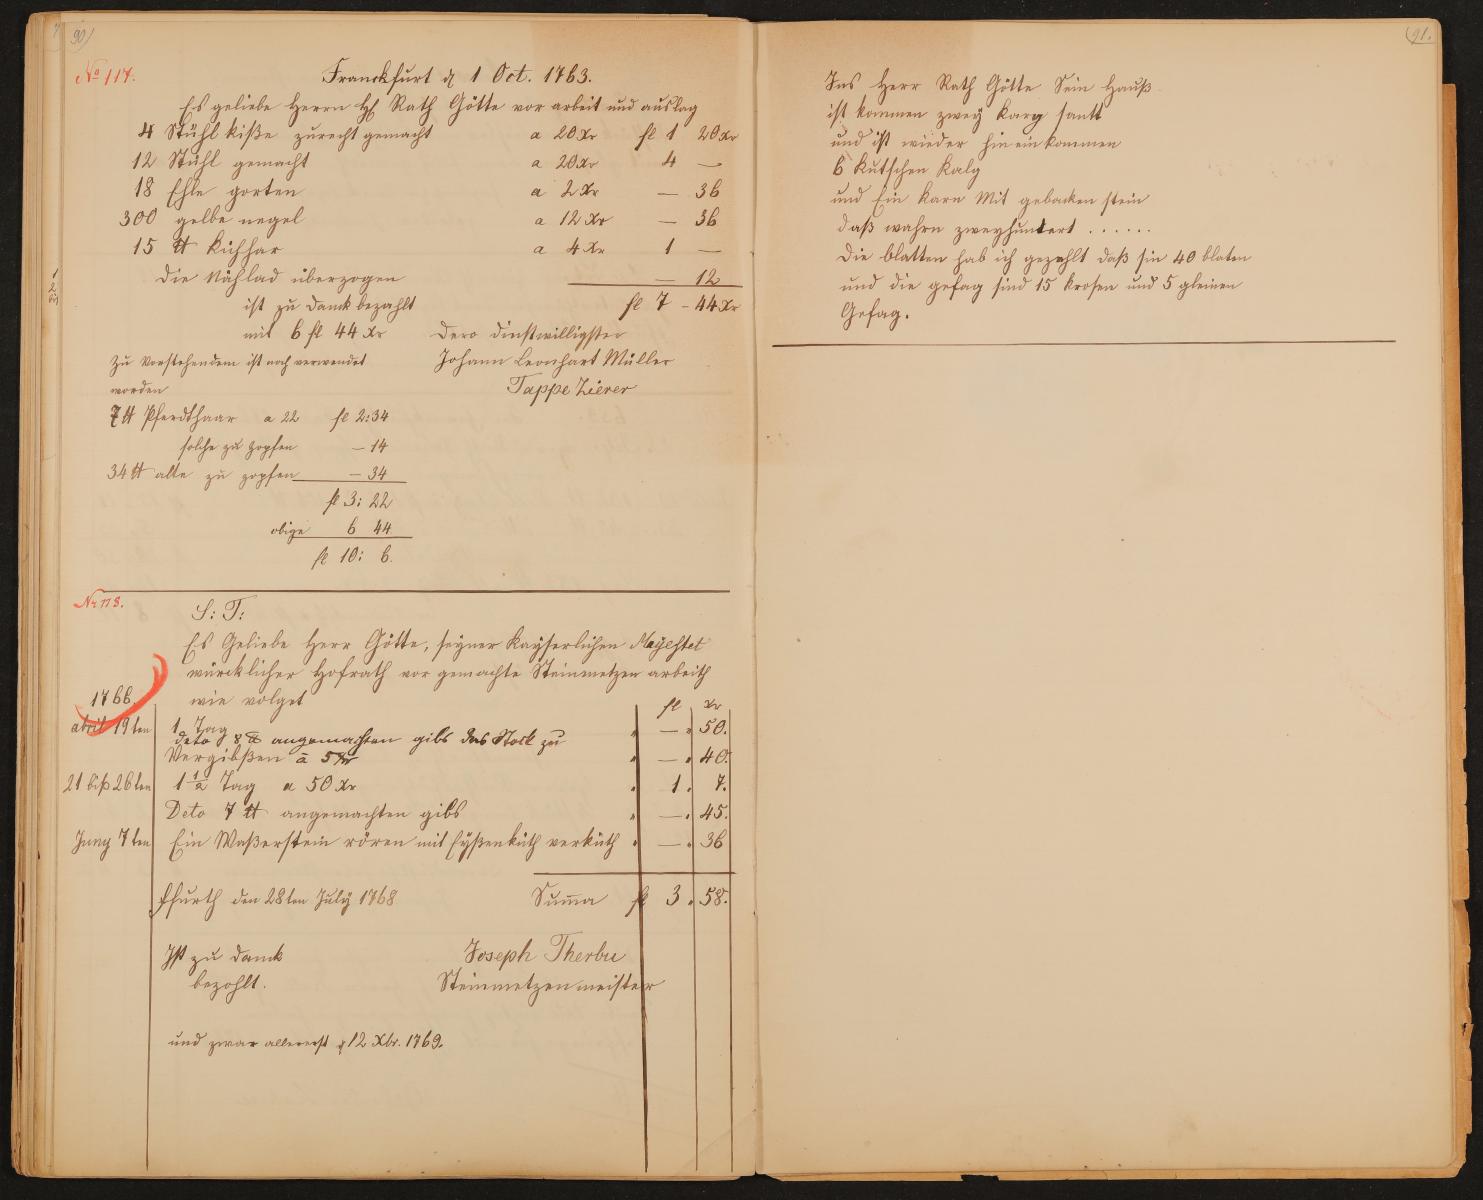 90)
No 117.
Franckfurt d 1 Oct. 1763.
Es geliebe Herrn Hf Rath Götte vor arbeit und auslag
4 Stühl kiße zurecht gemacht a 20 Xr fl 1 20 Xr
12 Stühl gemacht a 20 Xr 4 —
18 Ehle gorten a 2 Xr — 36
300 gelbe negel a 12 Xr — 36
15 ℔ Kihhar a 4 Xr 1 —
die Nählad überzogen — 12
ist zu danck bezahlt fl 7 - 44 Xr
mit 6 fl 44 Xr Dero dinstwilligster
Zu Vorstehendem ist noch verwendet Johann Leonhart Müller
worden Tappe Zierer
7 ℔ Pferdthaar a 22 fl 2:34
solche zu zopfen — 14
34 ℔ alte zu zopfen — 34
fl 3: 22
obige 6 44
fl 10: 6.
Nr 118.
S: T:
Es Geliebe Herr Götte, seyner Kayserlichen Mayestet
würcklicher Hofrath vor gemachte Steinmetzen arbeith
1766. wie volget fl Xr
abril 19ten 1 Tag — 50.
deto 8 ℔ angemachten gibs das Stock zu
Vergibßen à 5 Xr — 40.
21 biß 26ten 1 1/2 Tag a 50 Xr 1. 7.
Deto 7 ℔ angemachten gibs — 45.
Juny 7ten Ein Waßerstein rören mit Eyßenküth verküth — 36
ffurth den 28ten July 1768 Summa fl 3. 58.
Ist zu danck Joseph Therbu
bezohlt. Steinmetzenmeister
und zwar allererst d 12 Xbr. 1769.
91.
Ins Herr Rath Götte Sein Hauß
ist kommen zwey Karg santt
und ist wieder hin ein kommen
6 Kutschen Kalg
und Ein Karn Mit gebacken stein
daß wahrn zweyhuntert . . . . . .
die blatten hab ich gezahlt daß sin 40 blaten
und die gefag sind 15 krosen und 5 gleinen
Gefag.